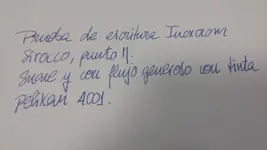 Prueba de escritura Inoxcrom
Sirocco, punto M.
Suave y con flujo generoso con tinta
Pelikan 4001.